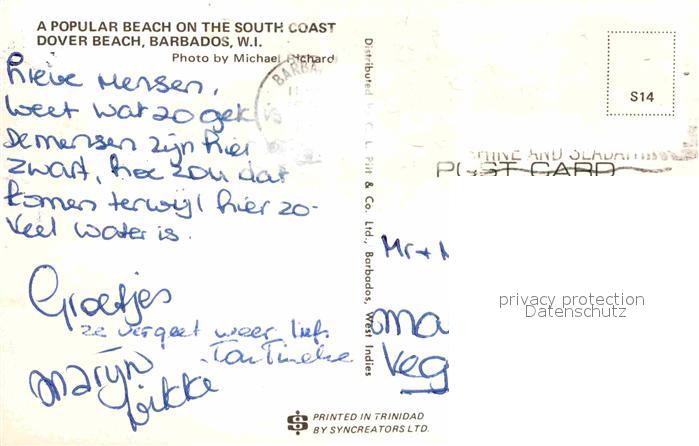 A POPULAR BEACH ON THE SOUTH COAST
DOVER BEACH, BARBADOS, W.I.
Photo by Michael Richard
Lieve Mensen,
Weet wat zo gek
De mensen zijn hier
zwart, hoe zou dat
komen terwijl hier zo-
veel water is.
Groetjes
ze vergeet weer lief
Tan Tineke
Martijn
Dikke
PRINTED IN TRINIDAD
BY SYNCREATORS LTD.
Distributed by C. L. Pitt & Co. Ltd., Barbados, West Indies
BARBA
S14
SHINE AND SEABATHING
POST CARD
Mr +
oma
Veg
privacy protection
Datenschutz